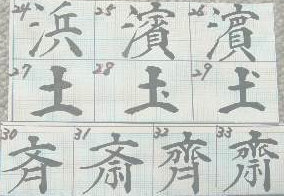 24 浜 25 濱 26 濵
27 土 28 圡 29 𡈽
30 斉 31 斎 32 齊 33 齋